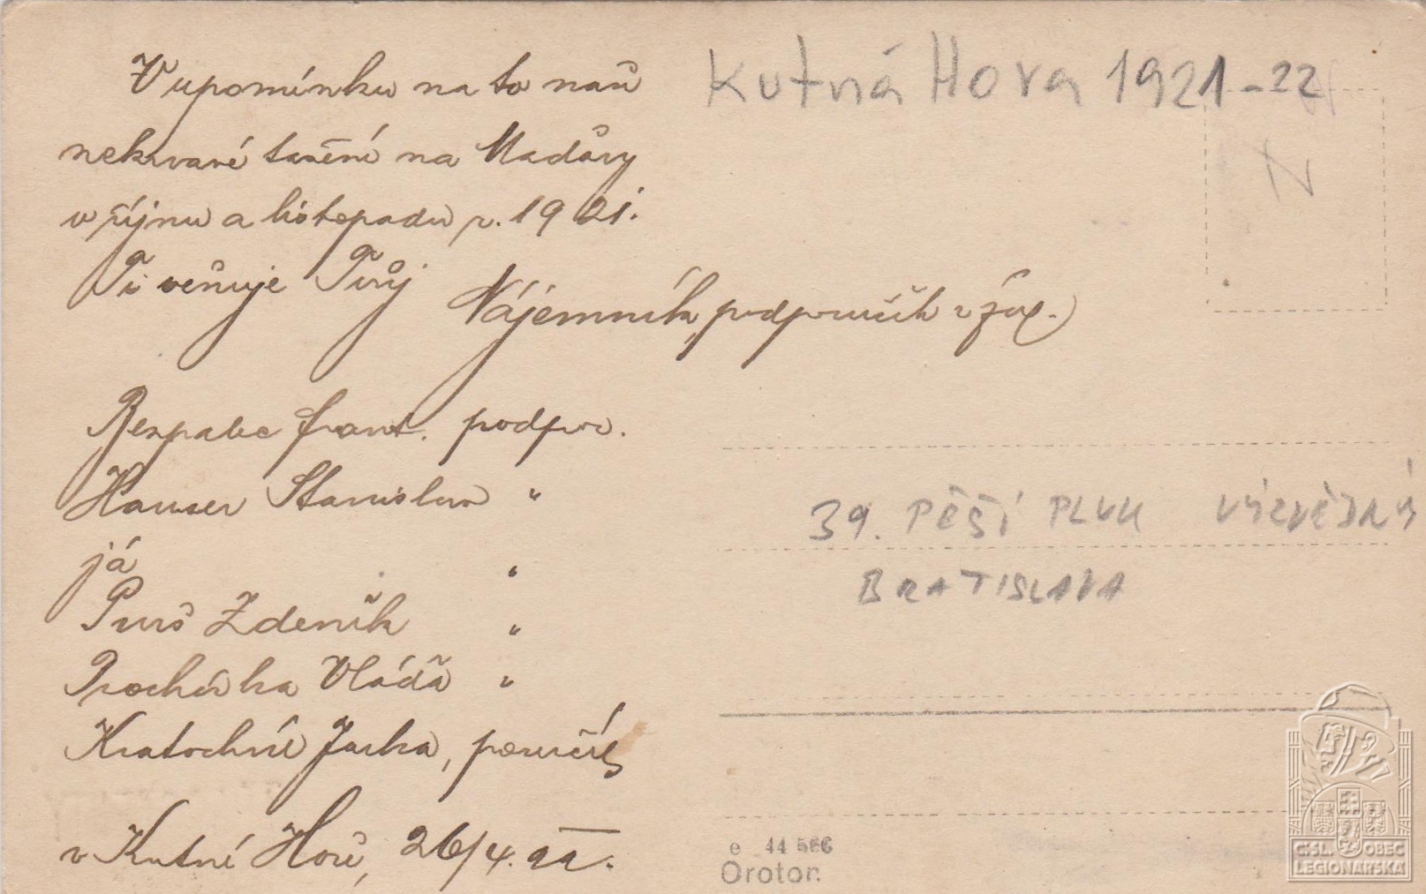 V upomínku na to naše
nekrvavé tažení na Maďary
v říjnu a listopadu r. 1921.
Ti věnuje Tvůj
Nájemník, podporučík v záp.
Bezpalec Frant. podpor.
Hauser Stanislav "
já "
Purš Zdeněk "
Procházka Vláďa "
Kratochvíl Jarka, poručík
v Kutné Hoře, 26/4. 22.
Kutná Hora 1921-22
N
39. PĚŠÍ PLUK VÝZVĚDNÝ
BRATISLAVA
e 44 566
Orotor.
ČSL. OBEC
LEGIONÁŘSKÁ